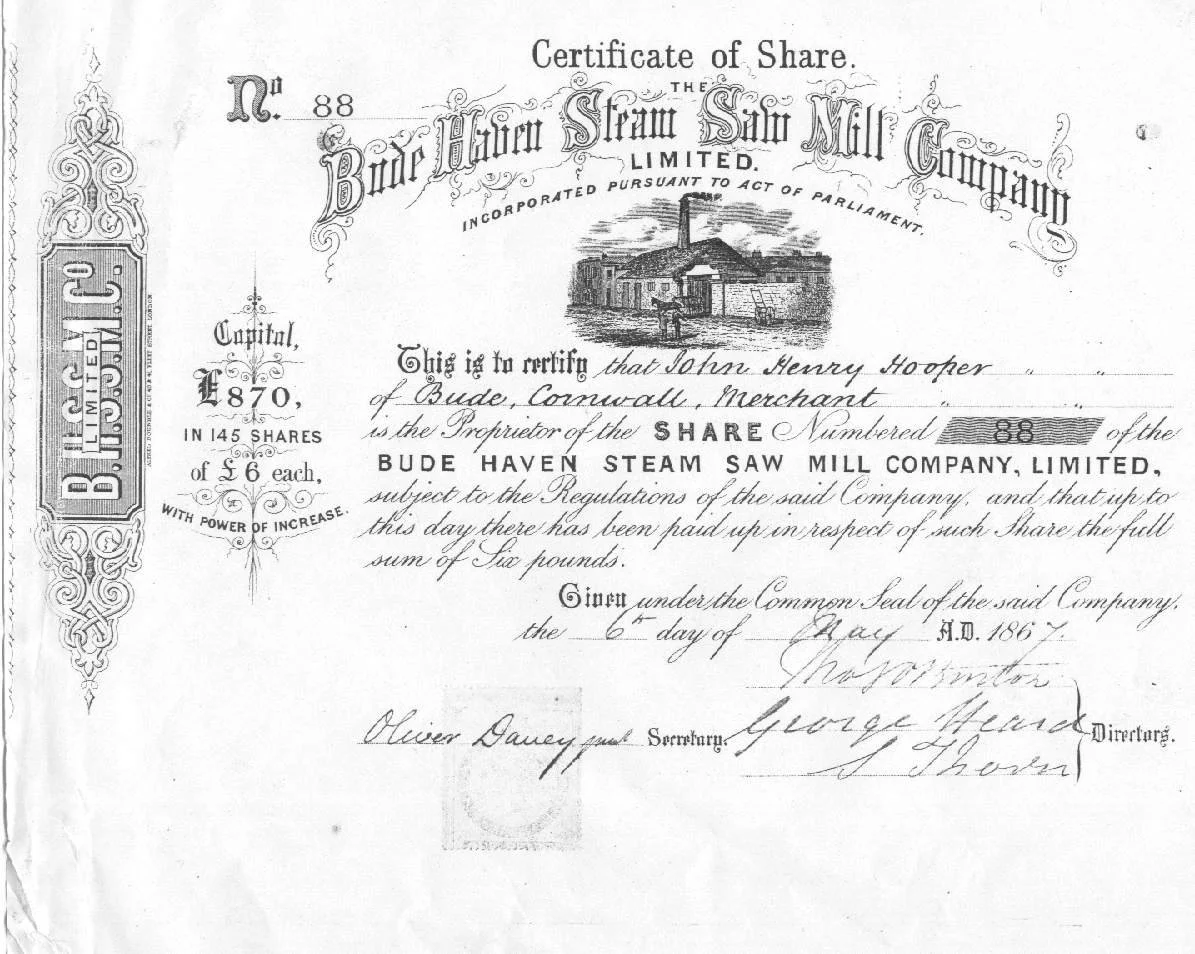 Certificate of Share.
No. 88
THE
Bude Haven Steam Saw Mill Company
LIMITED.
INCORPORATED PURSUANT TO ACT OF PARLIAMENT.
B.H.S.S.M.Co.
LIMITED
Capital,
£870,
IN 145 SHARES
of £6 each,
WITH POWER OF INCREASE.
This is to certify that John Henry Hooper " "
of Bude, Cornwall, Merchant " "
is the Proprietor of the SHARE Numbered 88 of the
BUDE HAVEN STEAM SAW MILL COMPANY, LIMITED,
subject to the Regulations of the said Company, and that up to
this day there has been paid up in respect of such Share the full
sum of Six pounds.
Given under the Common Seal of the said Company,
the 6th day of May A.D. 1867.
Oliver Davey Secretary.
George Heard
S Thorn
Directors.